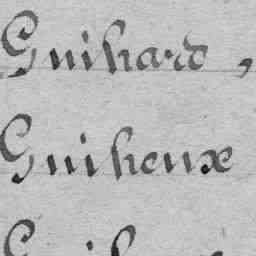 Guihard,
Guiheux